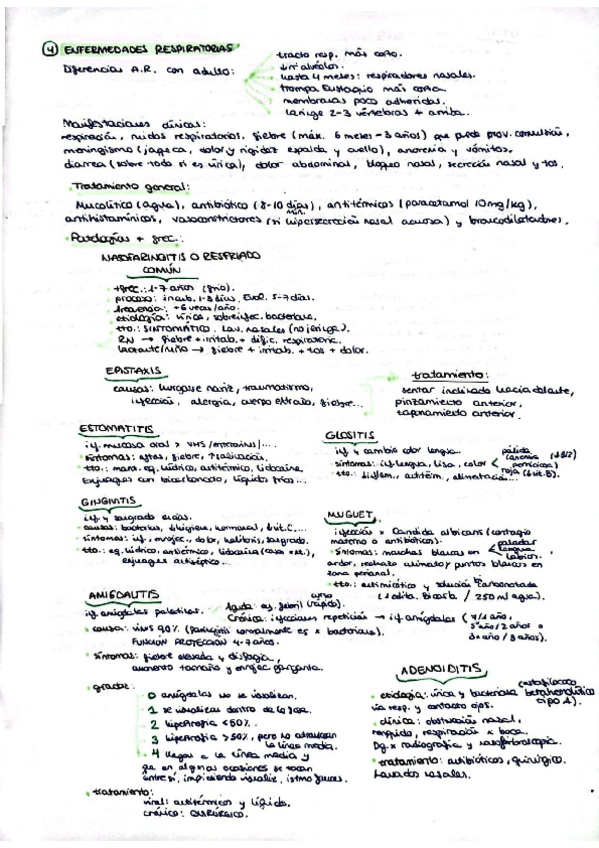 4 ENFERMEDADES RESPIRATORIAS
Diferencias A.R. con adulto:
tracto resp. más corto.
alvéolos.
hasta 4 meses: respiradores nasales.
trompa Eustaquio más corta
membranas poco adheridas.
laringe 2-3 vértebras + arriba.
Manifestaciones clínicas:
respiración, ruidos respiratorios, fiebre (máx. 6 meses-3 años) que puede prov. convulsión,
meningismo (jaqueca, dolor y rigidez espalda y cuello), anorexia y vómitos,
diarrea (sobre todo si es vírica), dolor abdominal, bloqueo nasal, secreción nasal y tos.
Tratamiento general:
Mucolítico (agua), antibiótico (8-10 días), antitérmicos (paracetamol 10mg/kg),
mín.
antihistamínicos, vasoconstrictores (si hipersecreción nasal acuosa) y broncodilatadores.
Patologías + frec.:
NASOFARINGITIS O RESFRIADO
COMÚN
+frec.: 1-7 años (frío).
proceso: incub. 1-3 días. Evol. 5-7 días.
frecuencia: +6 veces/año.
etiología: vírica, sobreinfec. bacteriana.
tto.: SINTOMÁTICO. Lav. nasales (no jeringa).
RN → fiebre + irritab. + dific. respiratoria.
lactante/niño → fiebre + irritab. + tos + dolor.
EPISTAXIS
causas: hurgarse nariz, traumatismo,
infección, alergia, cuerpo extraño, fiebre...
tratamiento:
sentar inclinado hacia delante,
pinzamiento anterior,
taponamiento anterior.
ESTOMATITIS
inf. mucosa oral > VHS /enterovirus/...
síntomas: aftas, fiebre, ↑salivación.
tto.: mant. eq. hídrico, antitérmico, lidocaína
enjuagues con bicarbonato, líquido frío...
GLOSITIS
inf. y cambio color lengua.
síntomas: inf. lengua, lisa, color
pálida
(anemia
perniciosa)
(↓B12)
roja (↓vit. B).
tto.: antitérm., alimentación...
GINGIVITIS
inf. y sangrado encías.
causas: bacterias, ↓higiene, hormonal, ↓vit. C,...
síntomas: inf., enrojec., dolor, halitosis, sangrado.
tto.: eq. hídrico, antitérmico, lidocaína
enjuagues antiséptico...
MUGUET
infección x Candida albicans (contagio
materno o antibióticos).
síntomas: manchas blancas en
paladar
lengua
labios.
ardor, rechazo alimento y puntos blancos en
zona perianal.
tto.: antimicótico y solución bicarbonatada
(1 cdita. Bicarb. / 250 ml agua).
AMIGDALITIS
inf. amígdalas palatinas.
Aguda: curso
febril (rápido).
Crónica: infecciones repetición → inf. amígdalas (7/1 año,
5 año/2 años o
3 año/3 años).
causa: virus 90%. (Faringitis normalmente es x bacterias).
FUNCIÓN PROTECCIÓN 4-7 años.
síntomas: fiebre elevada y disfagia,
aumento tamaño y enrojec. garganta.
grados:
0 amígdalas no se visualizan.
1 se visualizan dentro de la fosa.
2 hipertrofia <50%.
3 hipertrofia >50%, pero no atraviesan
la línea media.
4 llegan a la línea media y
que en algunas ocasiones se tocan
entre sí, impidiendo visualiz. istmo fauces.
tratamiento:
viral: antitérmicos y líquido.
crónico: QUIRÚRGICO.
ADENOIDITIS
etiología: vírica y bacteriana
betahemolítico
tipo A).
vía resp. y contacto ojos.
clínica: obstrucción nasal,
ronquido, respiración x boca.
Dg. x radiografía y nasofibroscopia.
tratamiento: antibióticos, quirúrgico.
Lavados nasales.